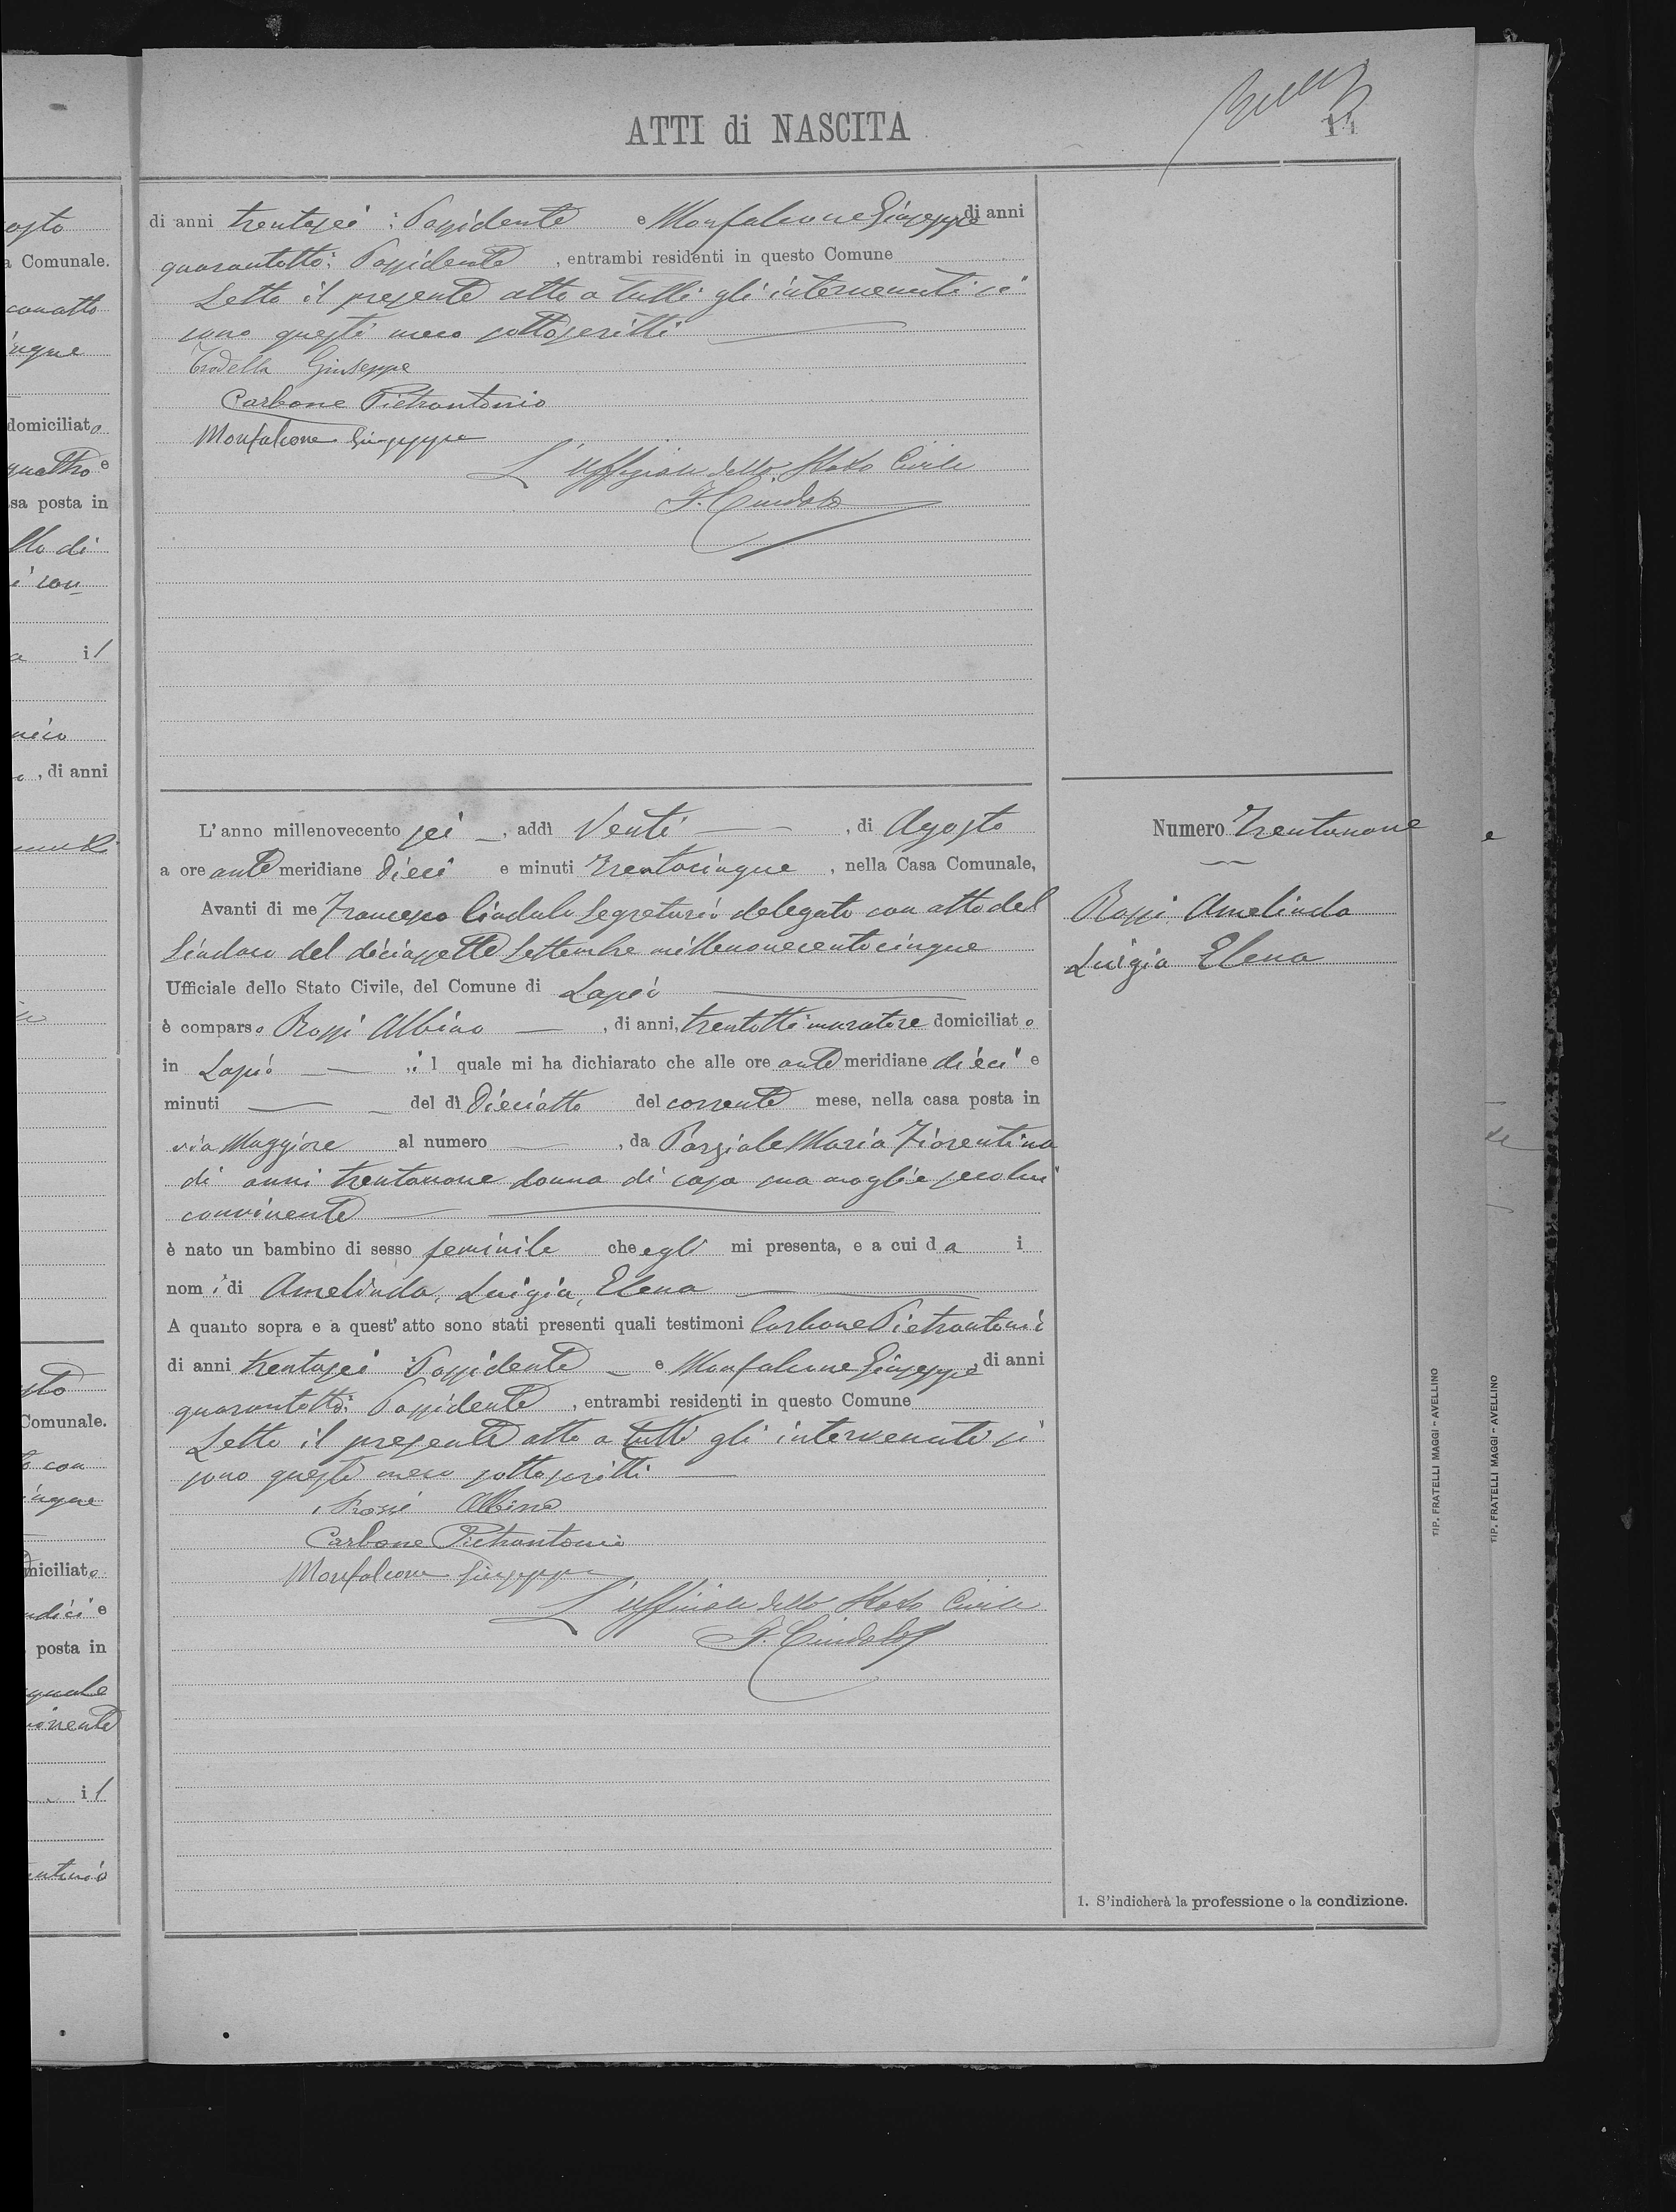 ATTI di NASCITA
14
di anni trentasei: Possidente e Monfalcone Giuseppe di anni
quarantotto: Possidente, entrambi residenti in questo Comune
Letto il presente atto a tutti gli intervenuti si
sono questi meco sottoscritti
Giuseppe
Carbone Pietrantonio
Monfalcone Giuseppe
L'Uffiziale dello Stato Civile
F. Cindolo
L'anno millenovecento sei, addì Venti, di Agosto
a ore antemeridiane dieci e minuti trentacinque, nella Casa Comunale,
Avanti di me Francesco Cindolo Segretario delegato con atto del
Sindaco del diciassette Settembre millenovecentocinque
Ufficiale dello Stato Civile, del Comune di Lapio
è comparso Rossi Albino, di anni, trentotto muratore domiciliato
in Lapio, il quale mi ha dichiarato che alle ore antemeridiane dieci e
minuti del dì dieciotto del corrente mese, nella casa posta in
via Maggiore al numero, da Parziale Maria Fiorentina
di anni trentanove donna di casa sua moglie seco lui
convivente
è nato un bambino di sesso feminile che egli mi presenta, e a cui da i
nomi di Amelinda, Luigia, Elena
A quanto sopra e a quest'atto sono stati presenti quali testimoni Carbone Pietrantonio
di anni trentasei Possidente e Monfalcone Giuseppe, di anni
quarantotto: Possidente, entrambi residenti in questo Comune
Letto il presente atto a tutti gli intervenuti si
sono questi meco sottoscritti
Rossi Albino
Carbone Pietrantonio
Monfalcone Giuseppe
L'Ufficiale dello Stato Civile
F. Cindolo
Numero Trentanove
Rossi Amelinda
Luigia Elena
1. S'indicherà la professione o la condizione.
TIP. FRATELLI MAGGI - AVELLINO
TIP. FRATELLI MAGGI - AVELLINO
a Comunale.
domiciliato
quattro e
sa posta in
il
, di anni
Comunale.
miciliato
posta in
il